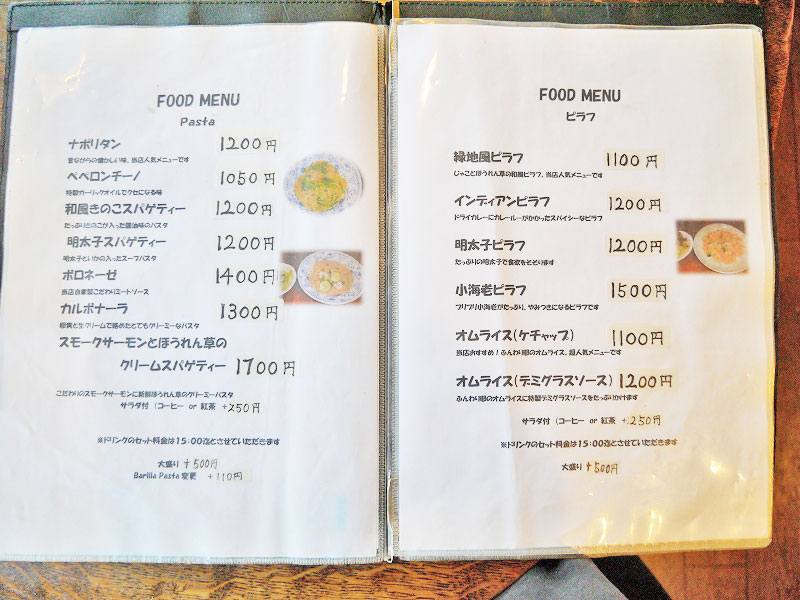 FOOD MENU
Pasta
ナポリタン 1200円
昔ながらの懐かしい味、当店人気メニューです
ペペロンチーノ 1050円
特製ガーリックオイルでクセになる味
和風きのこスパゲティー 1200円
たっぷりきのこが入った醤油味のパスタ
明太子スパゲティー 1200円
明太子といかの入ったスープパスタ
ボロネーゼ 1400円
当店自家製こだわりミートソース
カルボナーラ 1300円
卵黄と生クリームで絡めたとてもクリーミーなパスタ
スモークサーモンとほうれん草の
クリームスパゲティー 1700円
こだわりのスモークサーモンに新鮮ほうれん草のクリーミーパスタ
サラダ付 (コーヒー or 紅茶 +250円
※ドリンクのセット料金は15:00迄とさせていただきます
大盛り +500円
Barilla Pasta変更 +110円
FOOD MENU
ピラフ
緑地風ピラフ 1100円
じゃことほうれん草の和風ピラフ、当店人気メニューです
インディアンピラフ 1200円
ドライカレーにカレールーがかかったスパイシーなピラフ
明太子ピラフ 1200円
たっぷりの明太子で食欲をそそります
小海老ピラフ 1500円
プリプリ小海老がたっぷり、やみつきになるピラフです
オムライス(ケチャップ) 1100円
当店おすすめ!ふんわり卵のオムライス、超人気メニューです
オムライス(デミグラスソース) 1200円
ふんわり卵のオムライスに特製デミグラスソースをたっぷりかけます
サラダ付 (コーヒー or 紅茶 +250円
※ドリンクのセット料金は15:00迄とさせていただきます
大盛り +500円